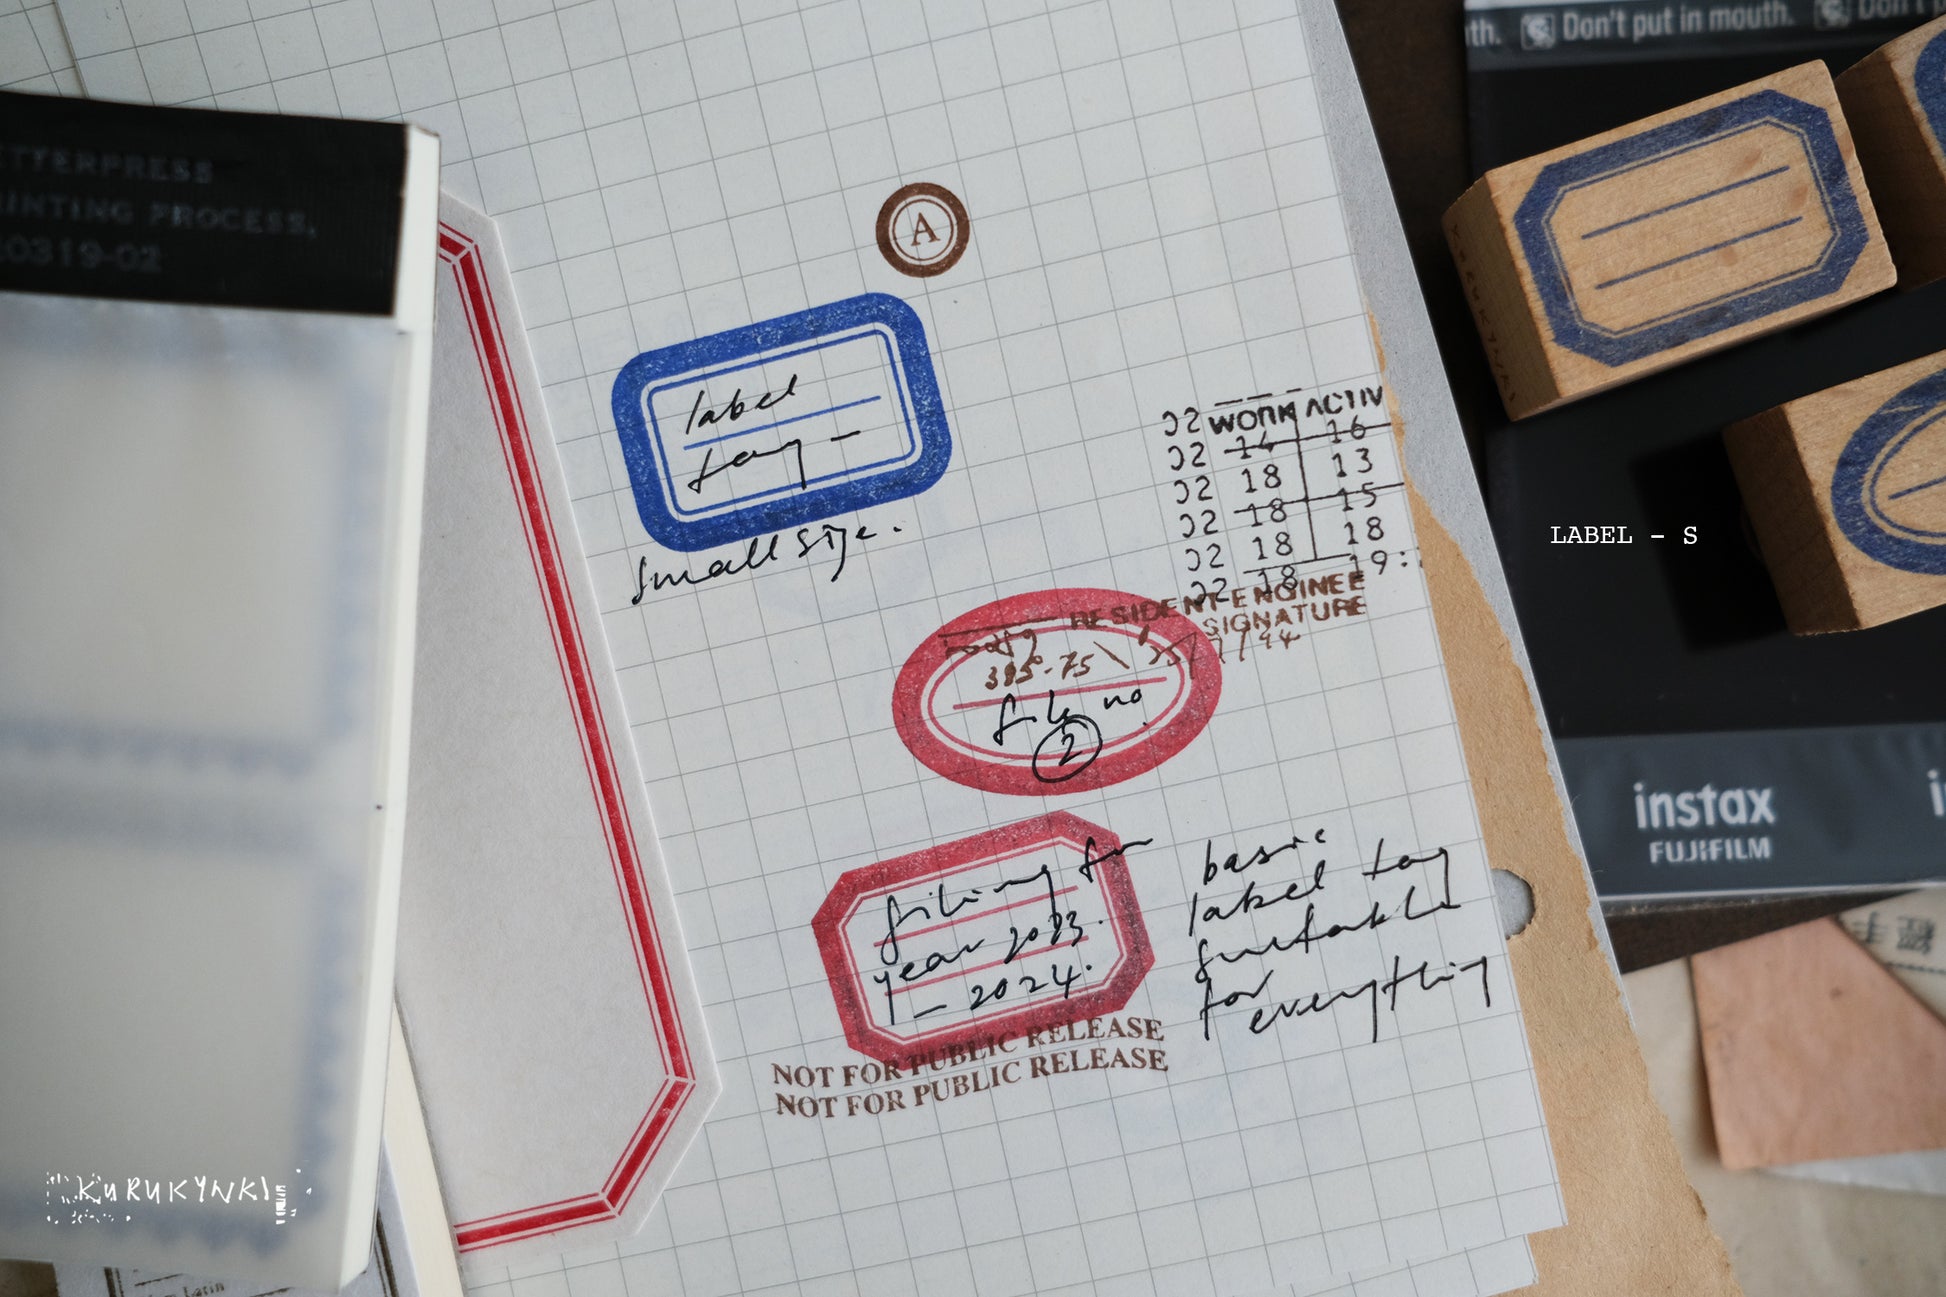 th. Don't put in mouth. Don't p
ETTERPRESS
INTING PROCESS.
60319-02
A
label
tag -
Small size.
WORK ACTIV
02 14 16
02 18 13
02 18 15
02 18 18
02 18 19:
RESIDENT ENGINEE
SIGNATURE
385-75 25/7/94
file no.
2
LABEL - S
instax
FUJIFILM
filing for
year 2023.
- 2024.
basic
label tag
suitable
for
everything
NOT FOR PUBLIC RELEASE
NOT FOR PUBLIC RELEASE
KURUKYNKI
KURUKYNKI